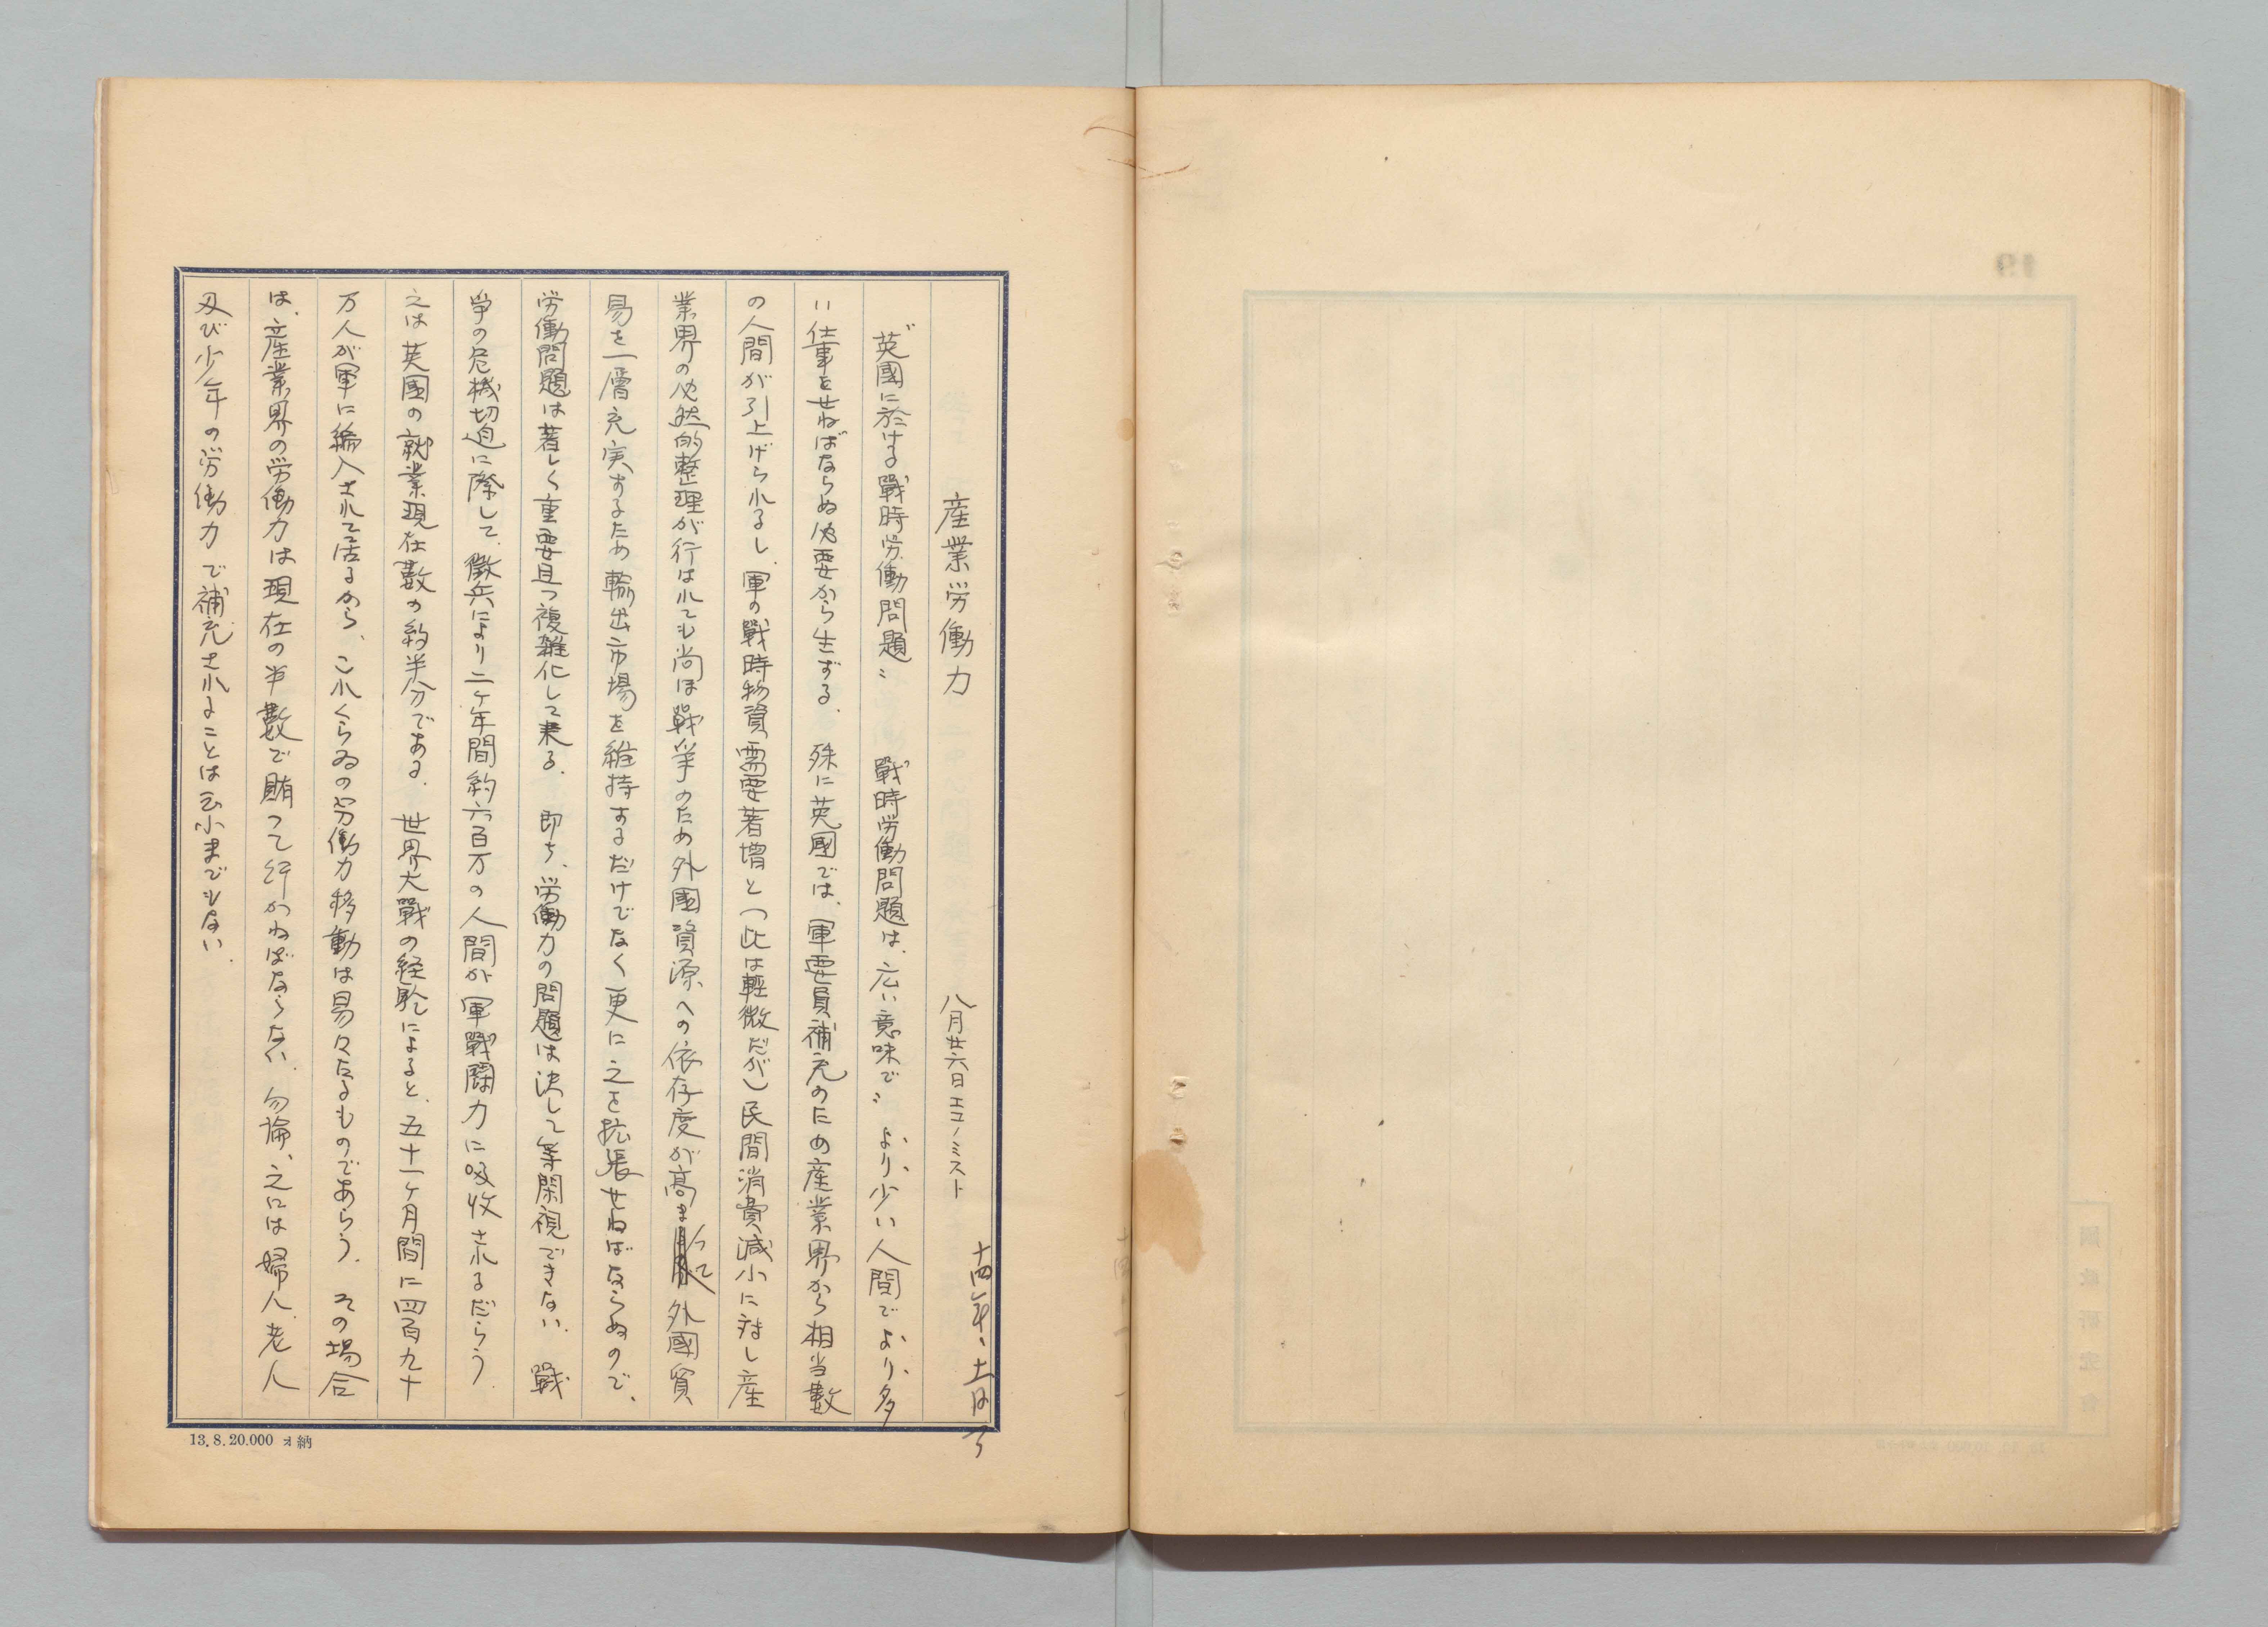 産業労働力　八月廿六日エコノミスト
十四年、十一月了
〝英國に於ける戰時労働問題〟　戰時労働問題は、〝広い意味で〟より少い人間でより多
い仕事をせねばならぬ必要から生ずる．殊に英國では、軍要員補充のため産業界から相当數
の人間が引上げられるし、軍の戰時物資需要著増と（此は輕微だが）民間消費減小に対し産
業界の必然的整理が行はれても尚ほ戰爭のため外國資源への依存度が高まつて外國貿
易を一層充実するため輸出市場を維持するだけでなく更に之を拡張せねばならぬので、
労働問題は著しく重要且つ複雑化して来る．即ち、労働力の問題は決して等閑視できない．戰
爭の危機切迫に際して、徴兵により二ヶ年間約六百万の人間が軍戰闘力に吸收されるだらう．
之は英國の就業現在數の約半分である．世界大戰の経験によると、五十一ヶ月間に四百九十
万人が軍に編入されて居るから、これくらゐの労働力移動は易々たるものであらう．その場合
は、産業界の労働力は現在の半數で賄つて行かねばならない．勿論、之には婦人、老人
及び少年の労働力で補充されることは云ふまでもない．
13．8．20.000 ォ納